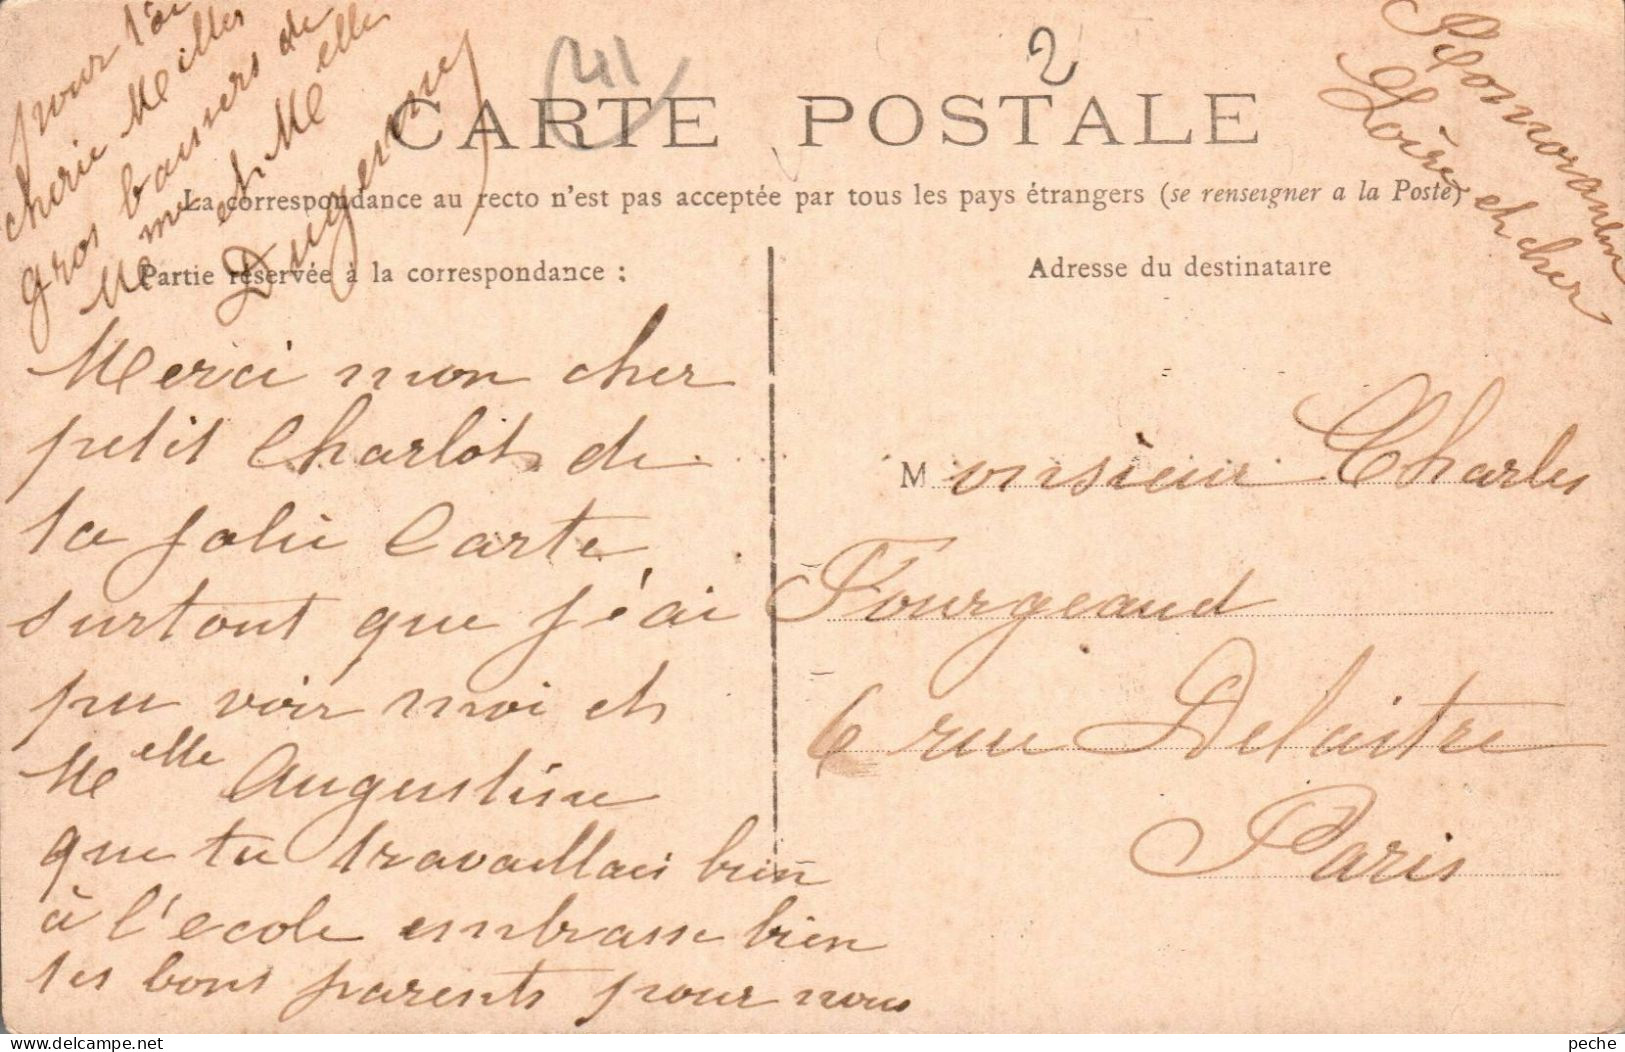 2
41
CARTE POSTALE
La correspondance au recto n'est pas acceptée par tous les pays étrangers (se renseigner a la Poste)
Partie réservée à la correspondance :
Merci mon cher
petit Charlot de
ta jolie Carte
surtout que j'ai
pu voir moi et
Melle Augustine
que tu travaillais bien
à l'école embrasse bien
tes bons parents pour nous
pour toi
cherie Meilles
gros baisers de
Mme et Melle
Duyerney
Romorantin
Loire et cher
Adresse du destinataire
Monsieur Charles
Fourgeaud
6 rue Delaitre
Paris
peche